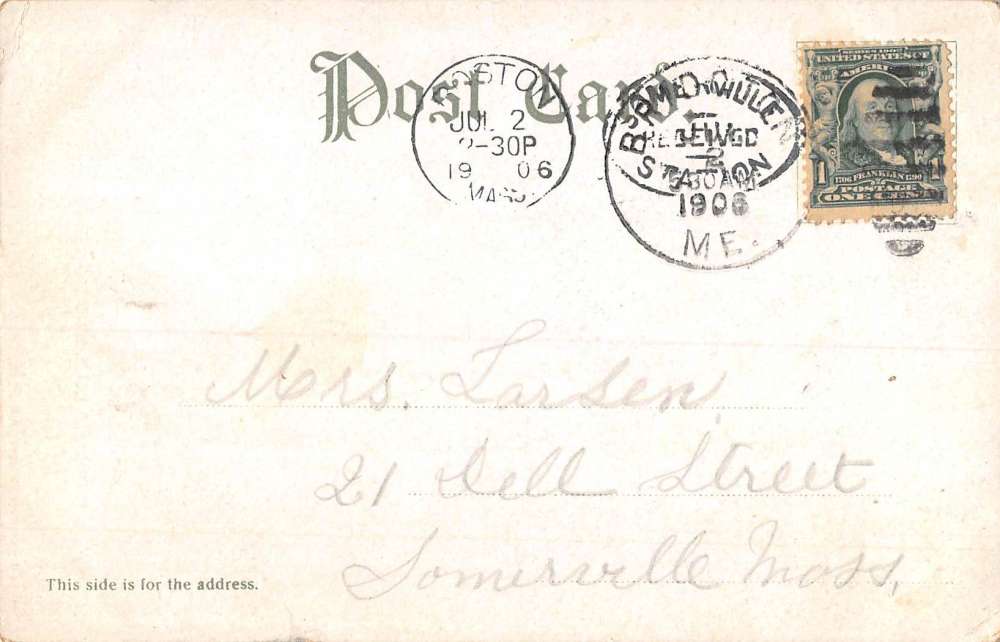 Post Card
BOSTON
JUL 2
2-30P
19 06
MASS
RECEIVED
STATION
1906
ME.
SERIES 1902
UNITED STATES OF
AMERI
1 1706 FRANKLIN 1790
POSTAGE
ONE CENT
Mrs. Larsen
21 Dell Street
Somerville Mass,
This side is for the address.